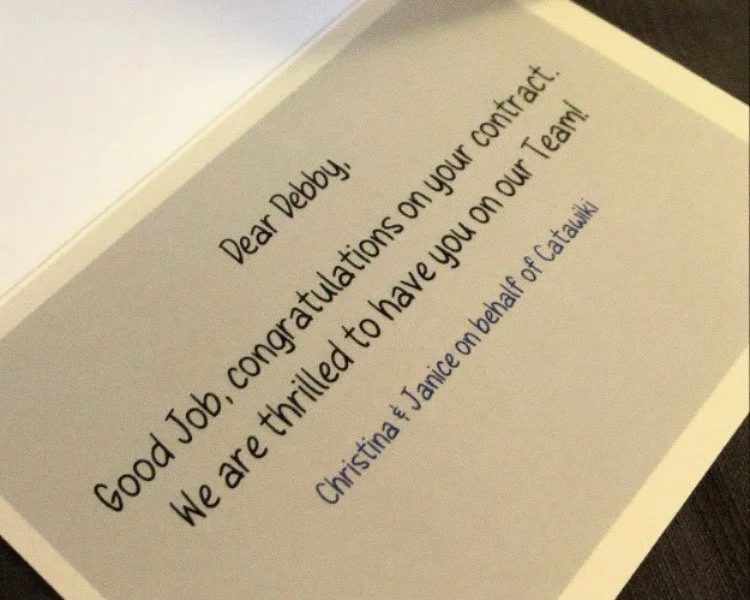 Dear Debby,
Good Job, congratulations on your contract.
We are thrilled to have you on our Team!
Christina & Janice on behalf of Catawiki